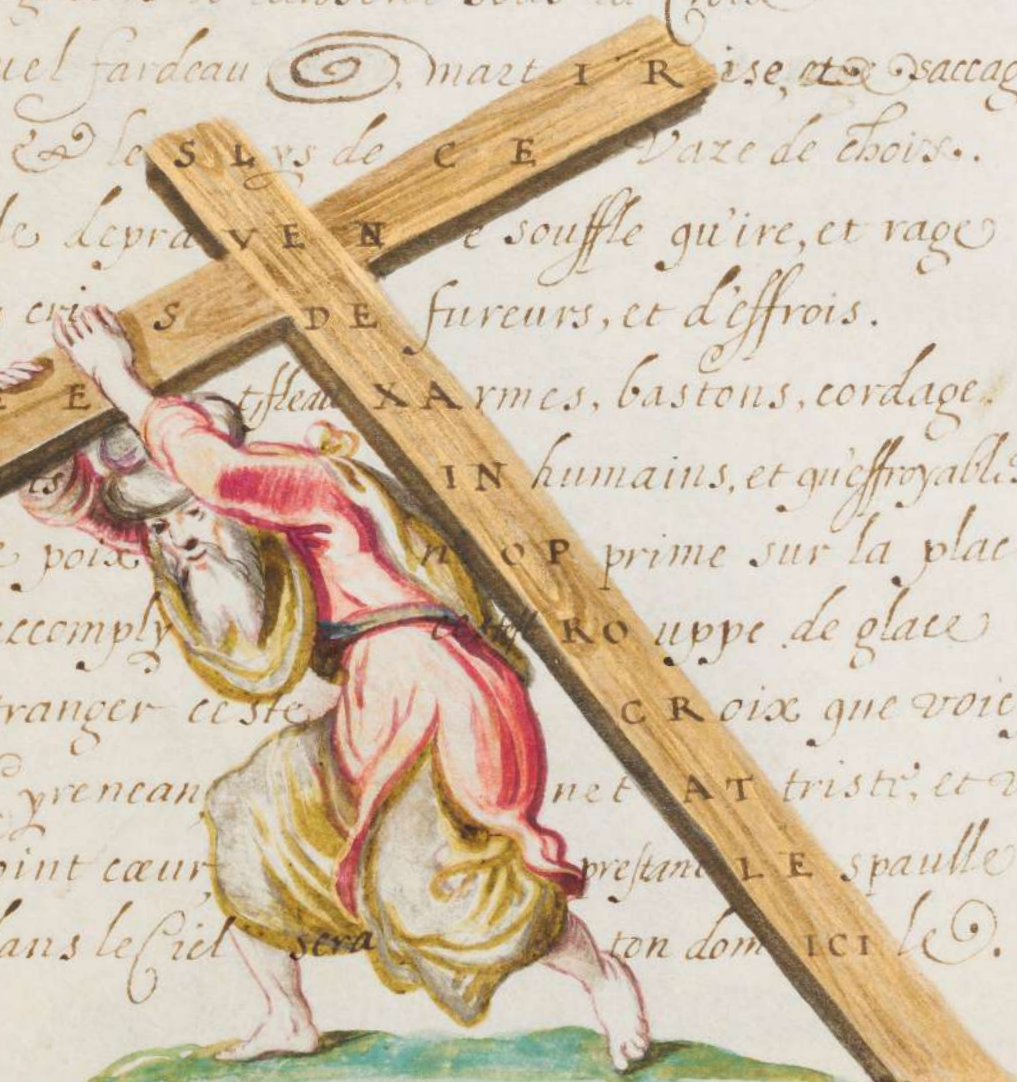 uel fardeau mart I R ise, et saccag
le S L ys de C E Vaze de choix.
de depra V E N e souffle qu'ire, et rage
S DE fureurs, et d'effrois.
E X A rmes, bastons, cordage.
IN humains, et qu'effroyables
poix n O P prime sur la plac
accomply ceste RO uppe de glace
tranger ceste C R oix que voic
net A T triste, et
oint cœur prestant L E spaulle
dans le Ciel sera ton dom ICI le.